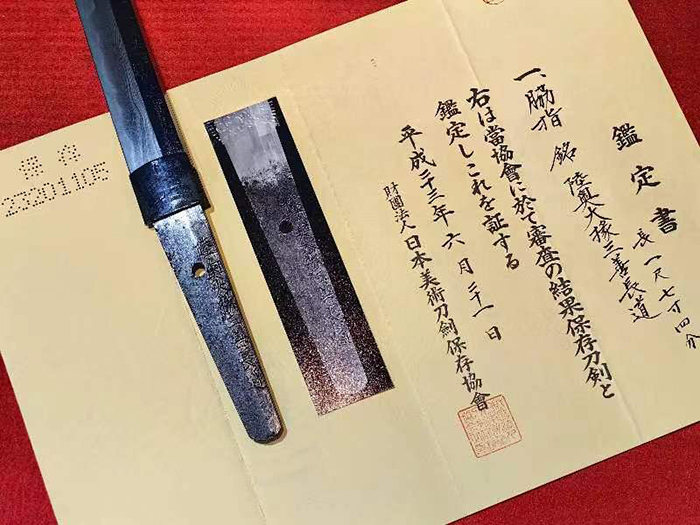 鑑定書
一、脇指 銘 陸奥大掾三善長道
長一尺七寸四分
右は當協會に於て審査の結果保存刀剣と
鑑定しこれを証する
平成二十三年六月二十一日
財團法人日本美術刀劍保存協會
保存
23201105